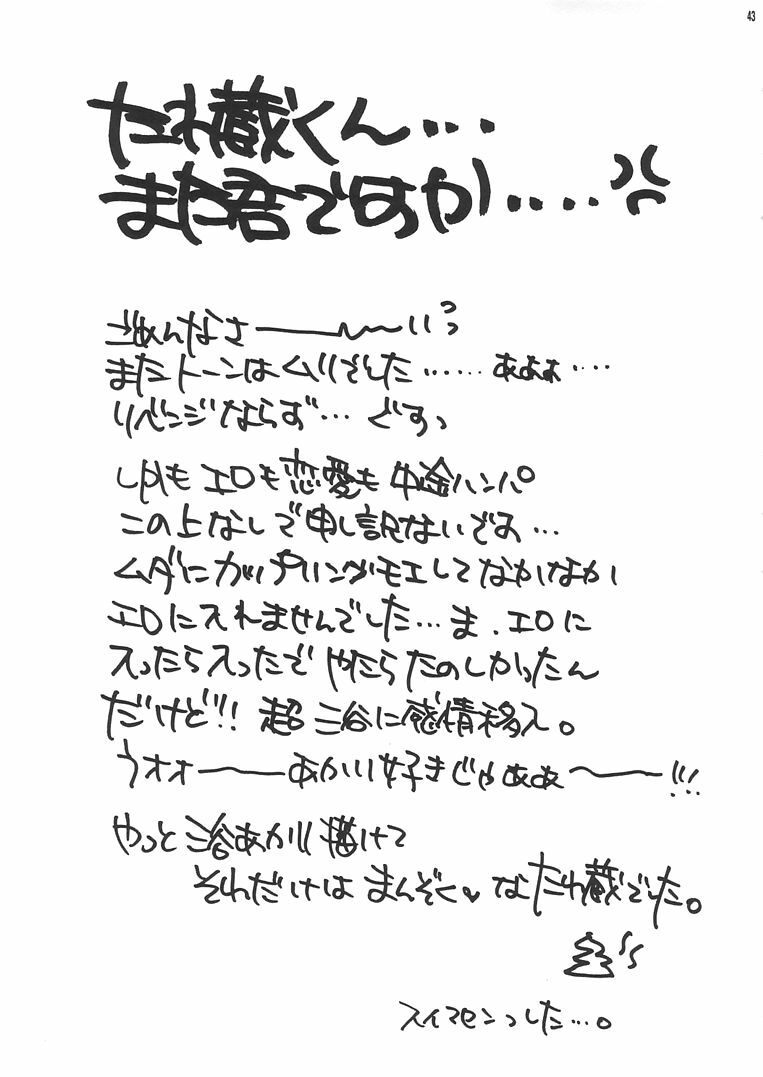 43
たわ蔵くん…
また君ですか‥‥
ごめんなさ――――いっっ
またトーンはムリでした……あぁぁぁ…
リベンジならず…ですっ
しかも エロも 恋愛も 中途ハンパ。
この上なしで申し訳ないです…
ムダにカップリングがモエしてなかなか
エロに入れませんでした…ま、エロに
入ったら入ったで やたらたのしかったん
だけど!! 超 三谷に感情移入。
うオォ――――あかり好きじゃぁぁ――――!!!
やっと三谷あかり 描けて
それだけは まんぞく♥なたわ蔵でした。
スイマセンっした…。